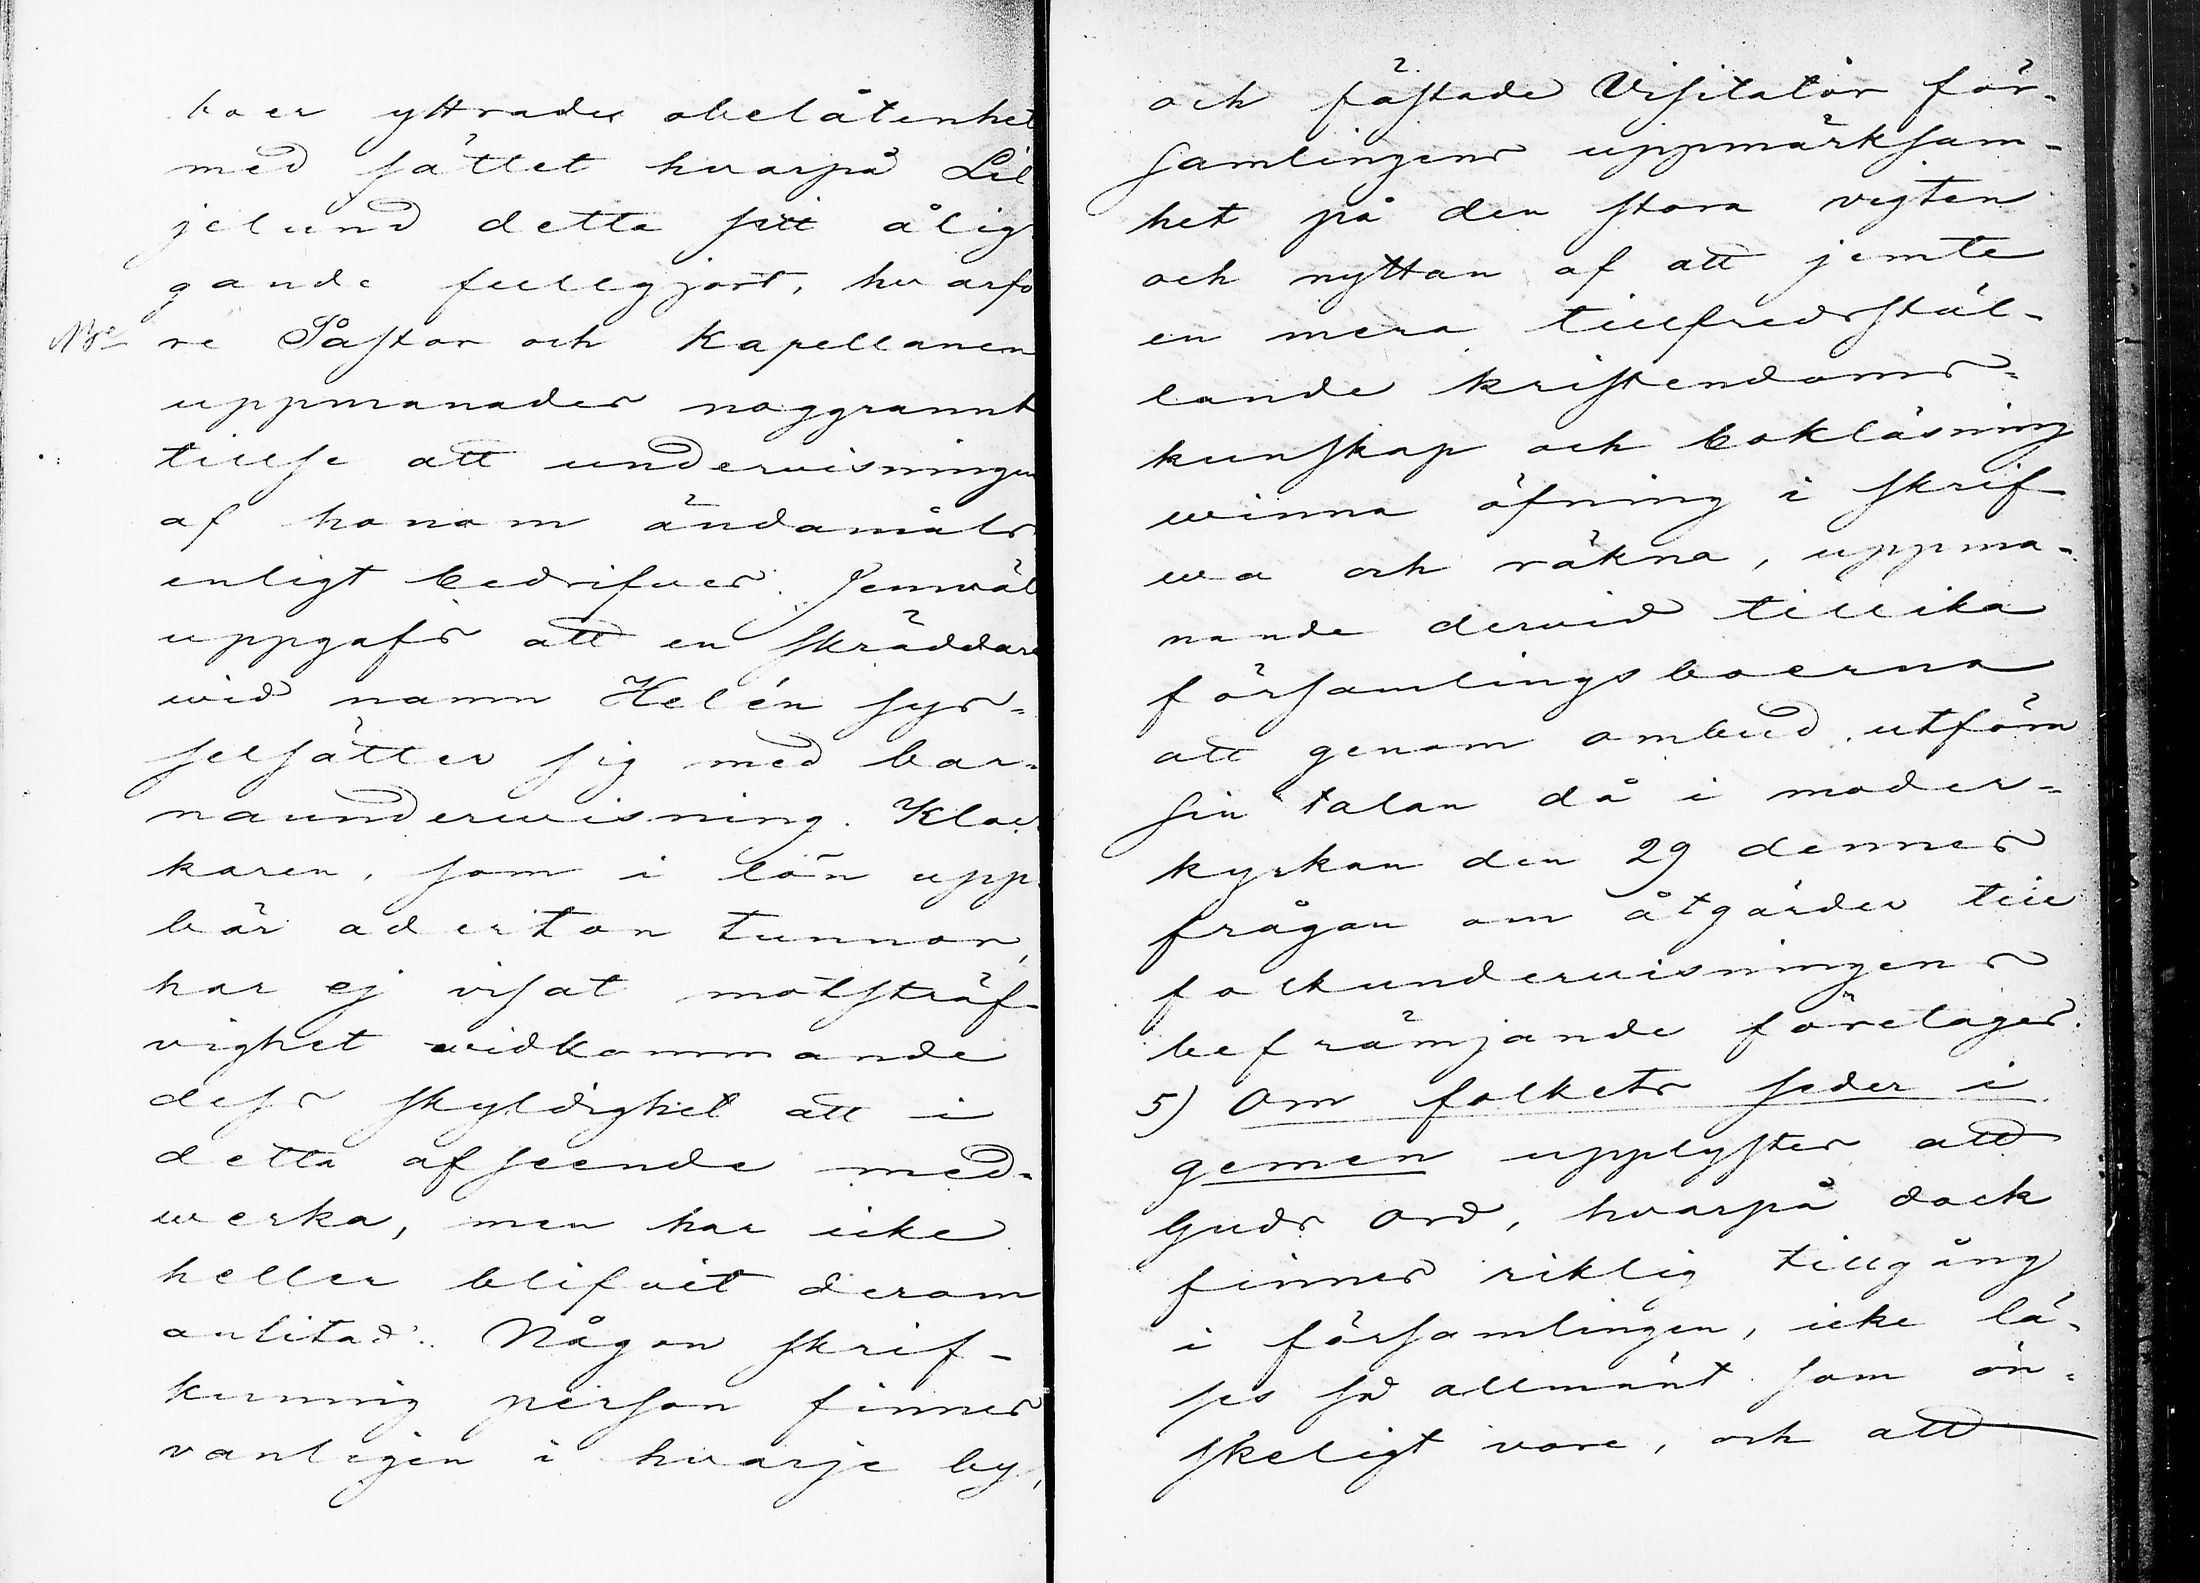 boer yttrades obelåtenhet
med sättet hvarpå Lil
jelund detta sitt ålig
gande fullgjort, hvarfö
re Pastor och Kapellanen
uppmanades noggrannt
tillse att undervisningen
af honom ändamåls
enligt bedrifves. Jemväl
uppgafs att en skräddare
wid namn Helén sys-
selsätter sig med bar-
naunderwisning. Kloc-
karen, som i lön upp-
bär aderton tunnor,
har ej visat motsträf-
vighet widkommande
dess skyldighet att i
detta afseende med-
werka, men har icke
heller blifvit derom
anlitad. Någon skrif-
kunnig person finnes
vanligen i hvarje by,
och fästade Visitator för-
samlingens uppmärksam-
het på den stora vigten
och nyttan af att jemte
en mera tillfredsstäl-
lande kristendoms-
kunskap och bokläsning
winna öfning i skrif
wa och räkna, uppma-
nande dervid tillika
församlingsboerna
att genom ombud utföra
sin talan då i moder-
kyrkan den 29 dennes
frågan om åtgärder till
folkundervisningens
befrämjande företages.
5) Om folkets seder i
gemen upplystes att
Guds Ord, hvarpå dock
finnes riklig tillgång
i församlingen, icke lä-
ses så allmänt som ön-
skeligt vore, och att